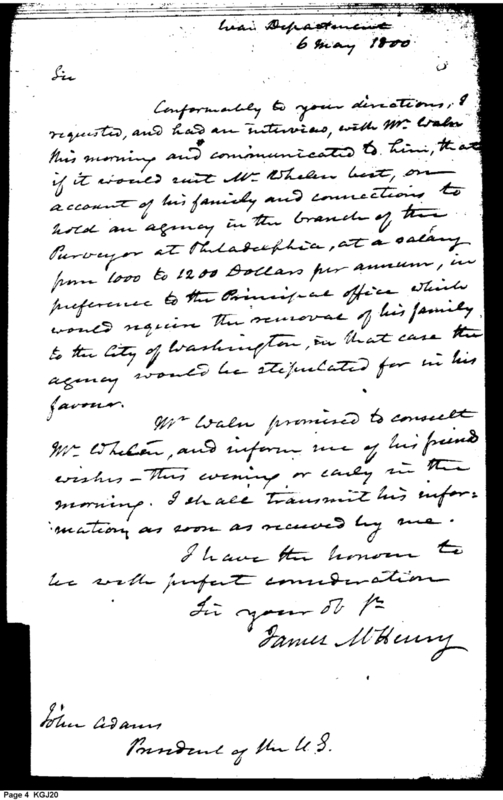 War Department
6 May 1800.
Sir
Conformably to your directions, I
requested, and had an interview, with Mr. Waln
this morning and communicated to him, that
if it would suit Mr. Whelen best, on
account of his family and connections to
hold an agency in the branch of the
Purveyor at Philadelphia, at a salary
from 1000 to 1200 Dollars per annum, in
preference to the Principal office which
would require the removal of his family
to the City of Washington, in that case the
agency would be stipulated for in his
favour.
Mr Waln promised to consult
Mr. Whelen, and inform me of his friend
wishes - this evening or early in the
morning. I shall transmit his infor-
mation, as soon as received by me.
I have the honour to
be with perfect consideration
Sir your ob
James McHenry
John Adams
President of the U.S.
Page 4 KGJ20